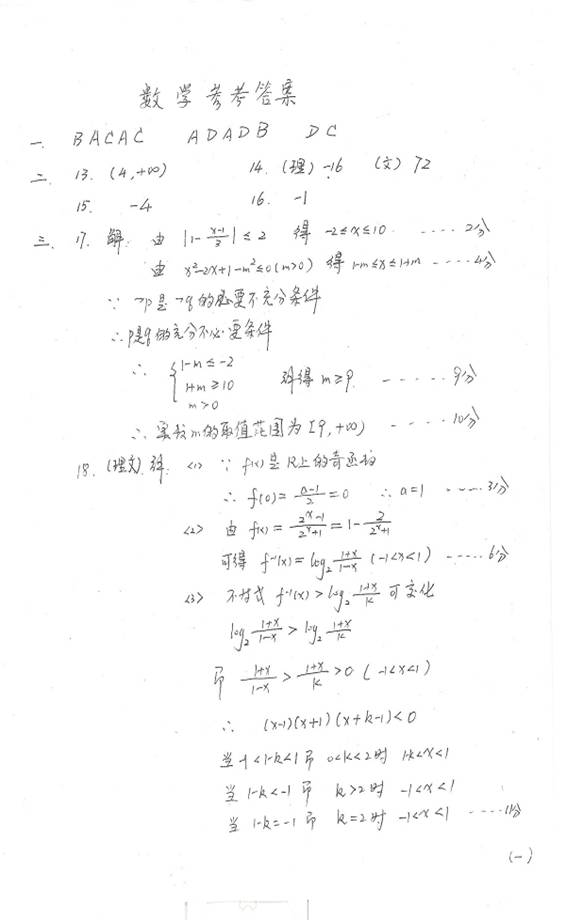 数学参考答案
一. BACAC ADADB DC
二. 13. (4,+∞) 14. (理) -16 (文) 72
15. -4 16. -1
三. 17. 解: 由 |1-\frac{x-1}{3}|≤2 得 -2≤x≤10 ----- 2分
由 x²-2x+1-m²≤0(m>0) 得 1-m≤x≤1+m ----- 4分
∵ ¬p是¬q的必要不充分条件
∴p是q的充分不必要条件
∴ { 1-m≤-2
1+m≥10 解得 m≥9. ----- 9分
m>0
∴ 实数m的取值范围为[9,+∞) ----- 10分
18. (理文) 解: <1> ∵ f(x)是R上的奇函数
∴ f(0)=\frac{a-1}{2}=0 ∴a=1 ----- 3分
<2> 由 f(x)=\frac{2^x-1}{2^x+1}=1-\frac{2}{2^x+1}
可得 f⁻¹(x)=log₂\frac{1+x}{1-x} (-1<x<1) ----- 6分
<3> 不等式 f⁻¹(x)>log₂\frac{1+x}{k} 可变化
log₂\frac{1+x}{1-x}>log₂\frac{1+x}{k}
即 \frac{1+x}{1-x}>\frac{1+x}{k}>0 (-1<x<1)
∴ (x-1)(x+1)(x+k-1)<0
当-1<1-k<1即 0<k<2时 1-k<x<1
当 1-k<-1 即 k>2时 -1<x<1
当 1-k=-1 即 k=2时 -1<x<1 ----- 11分
(一)